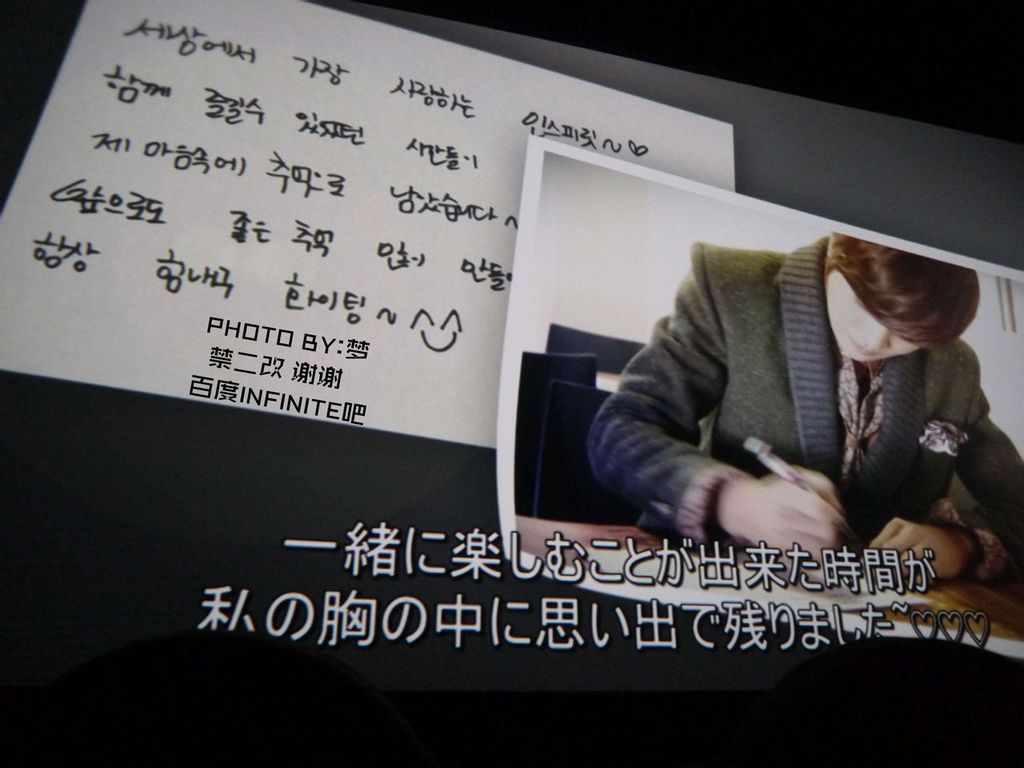 세상에서 가장 사랑하는 인스피릿~♡
함께 즐길수 있었던 시간들이
제 마음속에 추억으로 남았습니다~
앞으로도 좋은 추억 많이 만들
항상 힘내구 화이팅~^^
PHOTO BY:梦
禁二改 谢谢
百度INFINITE吧
一緒に楽しむことが出来た時間が
私の胸の中に思い出で残りました~♡♡♡